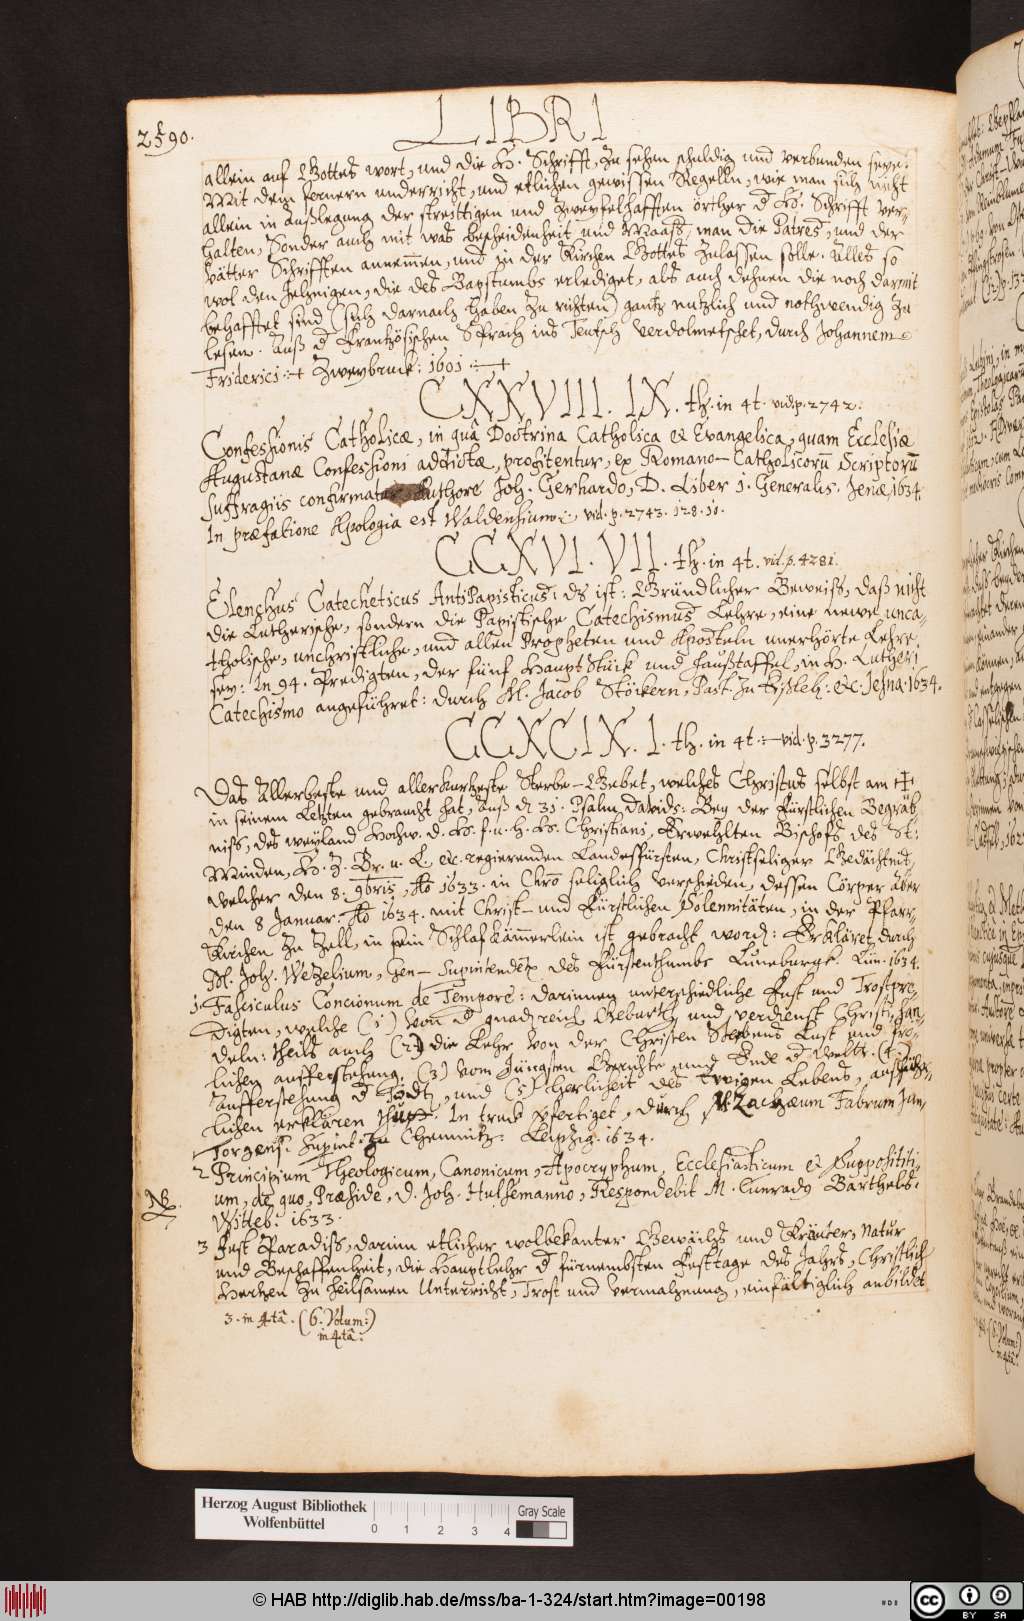 2590.
LIBRI
allein auf Gottes wort, und die H. Schrifft, zu sehen schuldig und verbunden seye.
Mit dem fernern underricht, und etlichen gewissen Regelln, wie man sich nicht
allein in Außlegung der streittigen und zweyfelhafften örther d H. Schrifft ver-
halten, Sonder auch mit was bescheidenheit und Maaß, man die Patres, und der
Vätter Schrifften annemen, und in der Kirchen Gottes zulassen solle. Alles so
wol den Jehnigen, die des Bapstumbs erlediget, als auch dehnen die noch darmit
behafftet sind (sich darnach haben zu richten) gantz nutzlich und nothwendig zu
lesen. Auß d Frantzösischen Sprach ins Teutsch verdolmetschet, durch Johannem
Friderici. Zweybruck: 1601.
CXXVIII. IX. th. in 4t. vid. p. 2742.
Confessionis Catholicæ, in quâ Doctrina Catholica et Evangelica, quam Ecclesiæ
Augustanæ Confessioni addictæ, profitentur, ex Romano-Catholicorũ Scriptorũ
suffragiis confirmatur Authore Joh. Gerhardo, D. Liber 1. Generalis. Jenæ 1634.
In præfatione Apologia est Waldensium. vid. p. 2743. 128. 11.
CCXVI. VII. th. in 4t. vid. p. 4281.
Elenchus Catecheticus AntiPapisticus: ds ist: Gründlicher Beweiß, daß nicht
die Lutherische, sondern die Papistische Catechismus Lehre, eine newe unca-
tholische, unchristliche, und allen Propheten und Aposteln unerhörte Lehre
sey: in 94. Predigten, der fünf HauptStück und Haußtaffel, in H. Lutheri
Catechismo angeführet: durch M. Jacob Stöckern, Past. zu Eißleb: &c. Jehna. 1634.
CCXCIX. 1. th. in 4t. vid. p. 3277.
Das Allerbeste und allerkurtzeste Sterbe-Gebet, welches Christus selbst am
in seinem Letzten gebraucht hat, auß d 31. Psalm Davids: Bey der Fürstlichen Begräb-
niß, des weyland Hochw. d. H. f. u. H. H. Christiani, Erwehlten Bischofs des St:
Münden, H. Z. Br. u. L. &c. regierenden Landesfürsten, Christseliger Gedächtnis,
welcher den 8. 9bris, Ao 1633. in Chro seliglich verschieden, dessen Cörper aber
den 8 Januar. Ao 1634. mit Christ- und Fürstlichen Solennitäten, in der Pfarr-
Kirchen zu Zell, in sein Schlafkämmerlein ist gebracht word: Erkläret durch
M. Joh. Wetzelium, Gen- Supintendet des Fürstenthumbs Luneburgk. Lün. 1634.
1. Fasciculus Concionum de Tempore: darinnen unterschiedliche Fest und Trostpre-
digten, welche (1) von d gnadreich Geburth und verdienst Christi, han-
deln: theils auch (2) die Lehr von der Christen Sterbens Lust und frö-
lichen aufferstehung. (3) vom Jüngsten Gerichte und Ende d Welt. (4)
Aufferstehung d Todt, und (5) herlichheit des Ewigen Lebens, ausführ-
lichen erklären thut. In truck gefertiget, durch M. Zachæum Fabrum Jan-
Torgens. Supint. zu Chemnitz: Leipzig. 1634.
2 Principium Theologicum, Canonicum, Apocryphum, Ecclesiasticum et Supposititi-
um, de quo, Præside, D. Joh. Hulsemanno, Respondebit M. Cunrady Barthels.
Witteb: 1633.
NB.
3 Fest Paradiß, darinn etlicher wolbekanter Gewächs und Kräuter, Natur
und Beschaffenheit, die Hauptlehr d fürnembsten Festtage des Jahrs, Christlich
Hertzen zu heilsamen Unterricht, Trost und vermahnung, einfältiglich anbildet
3. in 4tâ. (6. Volum:)
in 4tâ.
Herzog August Bibliothek
Wolfenbüttel
0 1 2 3 4
Gray Scale
© HAB http://diglib.hab.de/mss/ba-1-324/start.htm?image=00198
cc BY SA